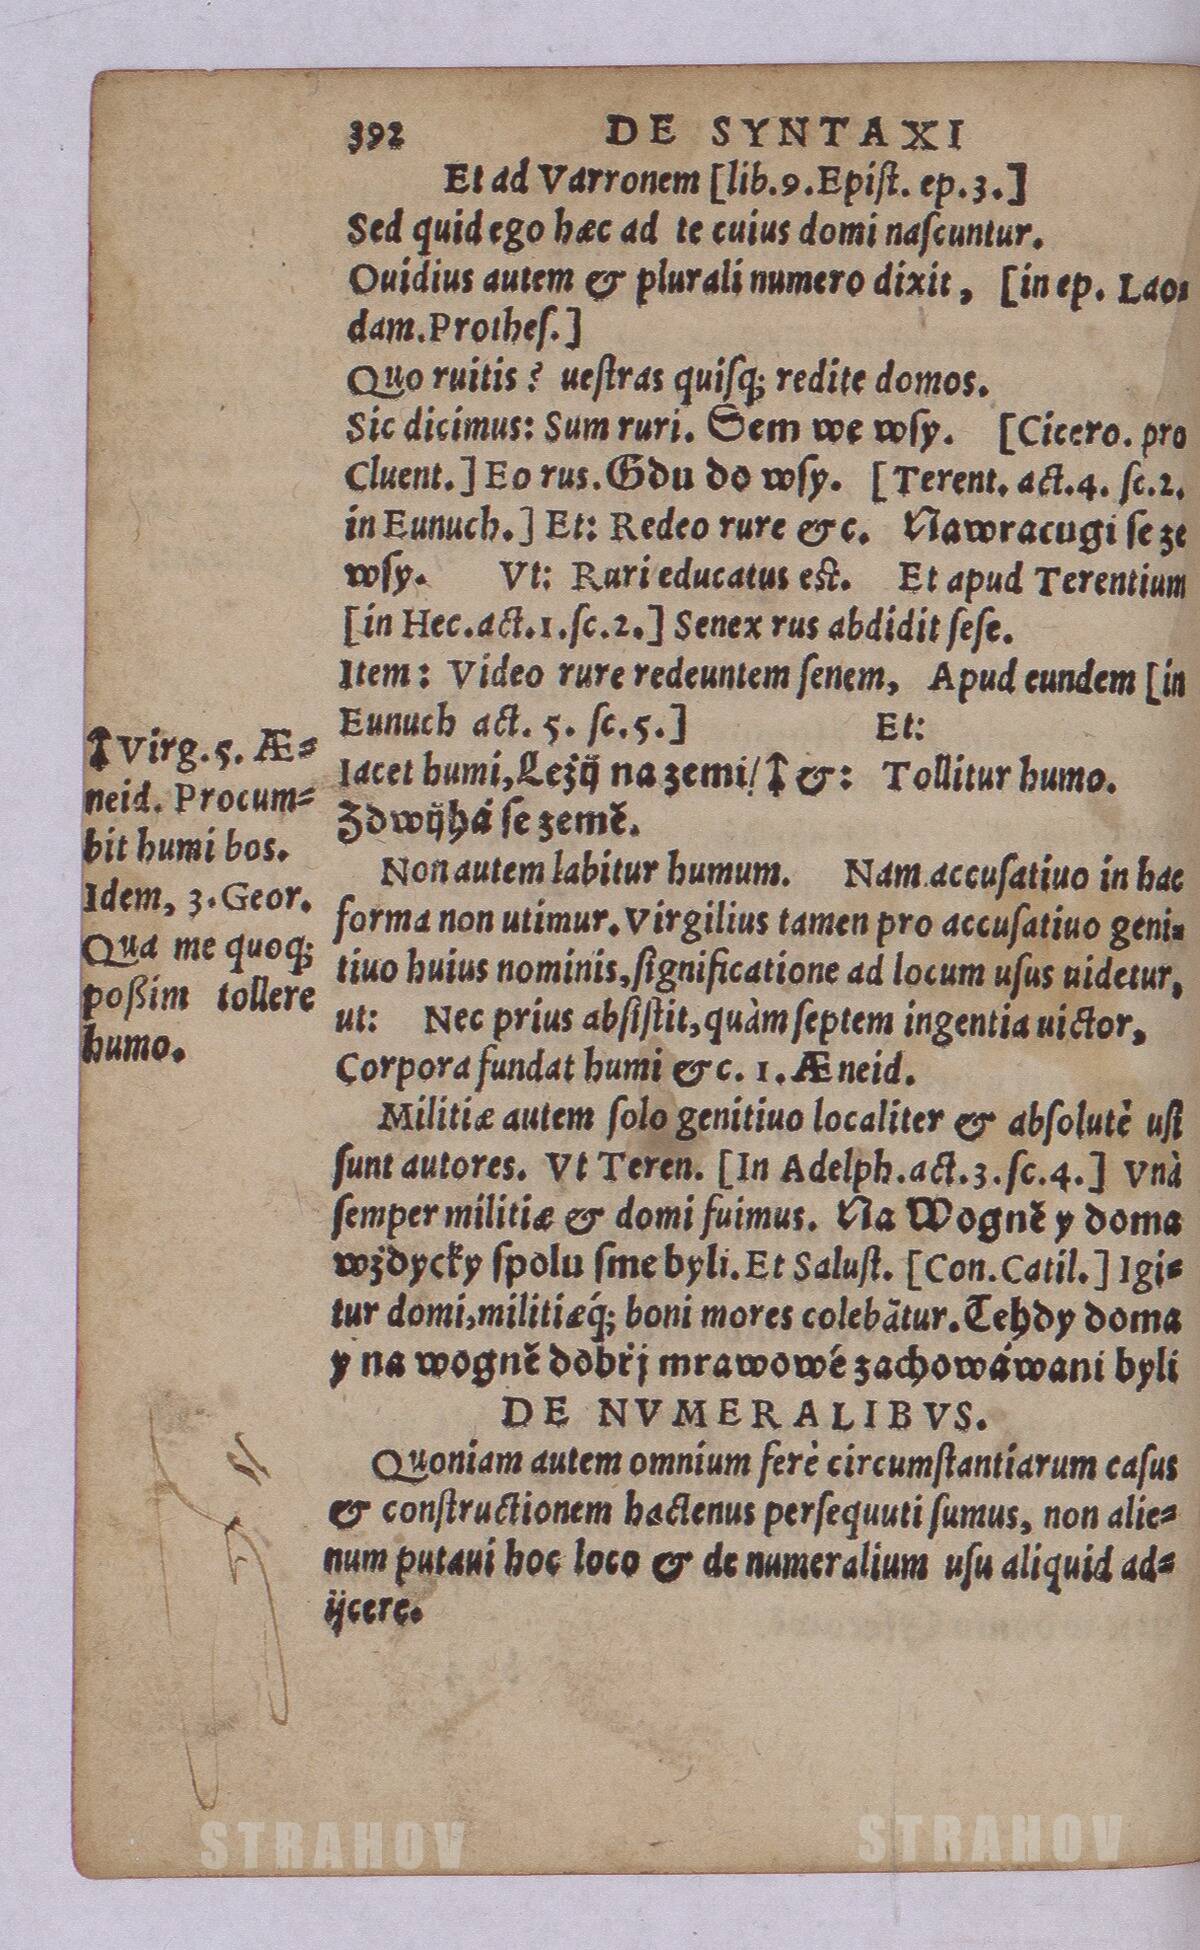 392 DE SYNTAXI
Et ad Varronem [lib.9.Epiſt. ep.3.]
Sed quid ego hæc ad te cuius domi naſcuntur.
Ouidius autem & plurali numero dixit, [in ep. Lao⸗
dam.Protheſ.]
Quo ruitis? ueſtras quiſq; redite domos.
Sic dicimus: Sum ruri. Sem we wſy. [Cicero. pro
Cluent.] Eo rus. Gdu do wſy. [Terent. act.4. ſc.2.
in Eunuch.] Et: Redeo rure &c. Nawracugi ſe ze
wſy. Vt: Ruri educatus eſt. Et apud Terentium
[in Hec.act.1.ſc.2.] Senex rus abdidit ſeſe.
Item: Video rure redeuntem ſenem, Apud eundem [in
Eunuch act. 5. ſc.5.] Et:
Iacet humi, Ležij na zemi/ ↨ &: Tollitur humo.
Zdwijhá ſe země.
Non autem labitur humum. Nam accuſatiuo in hac
forma non utimur. Virgilius tamen pro accuſatiuo geni⸗
tiuo huius nominis, ſignificatione ad locum uſus uidetur,
ut: Nec prius abſiſtit, quàm ſeptem ingentia uictor,
Corpora fundat humi &c. 1. Æneid.
Militiæ autem ſolo genitiuo localiter & abſolutè uſi
ſunt autores. Vt Teren. [In Adelph.act.3.ſc.4.] Vnà
ſemper militiæ & domi fuimus. Na Wogně y doma
wždycky ſpolu ſme byli. Et Saluſt. [Con.Catil.] Igi⸗
tur domi, militiæq́; boni mores colebātur. Tehdy doma
y na wogně dobřj mrawowé zachowáwani byli
DE NVMERALIBVS.
Quoniam autem omnium ferè circumſtantiarum caſus
& conſtructionem hactenus perſequuti ſumus, non alie⸗
num putaui hoc loco & de numeralium uſu aliquid ad⸗
ijcere.
↨ Virg.5. Æ⸗
neid. Procum⸗
bit humi bos.
Idem, 3. Geor.
Qua me quoq;
poßim tollere
humo.
STRAHOV STRAHOV